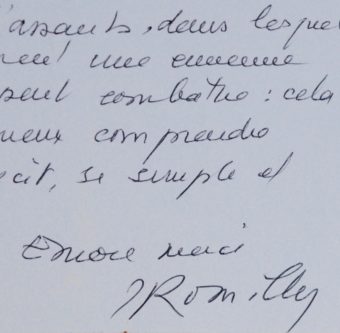 assauts, dans lesquel
une ennemie
combattre : cela
mieux comprendre
cit, si simple et
Encore merci
JRomilly